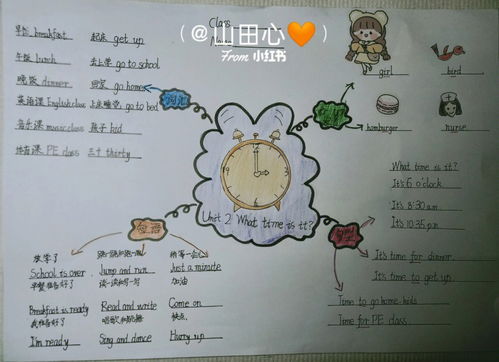 Class
(@山田心🧡)
Name
From 小红书
早餐 breakfast 起床 get up
午餐 lunch 去上学 go to school
晚餐 dinner 回家 go home
英语课 English class 上床睡觉 go to bed
音乐课 music class 孩子 kid
体育课 PE class 三十 thirty
词汇
girl
bird
hamburger
nurse
Unit 2 What time is it?
What time is it?
It's 6 o'clock
It's 8:30 am
It's 10:35 pm
It's time for dinner
It's time to get up
Time to go home kids
Time for PE class
放学了
School is over
早餐准备好了
Breakfast is ready
我准备好了
I'm ready
Jump and run
读一读和写一写
Read and write
Sing and dance
Just a minute
加油
Come on
快点
Hurry up